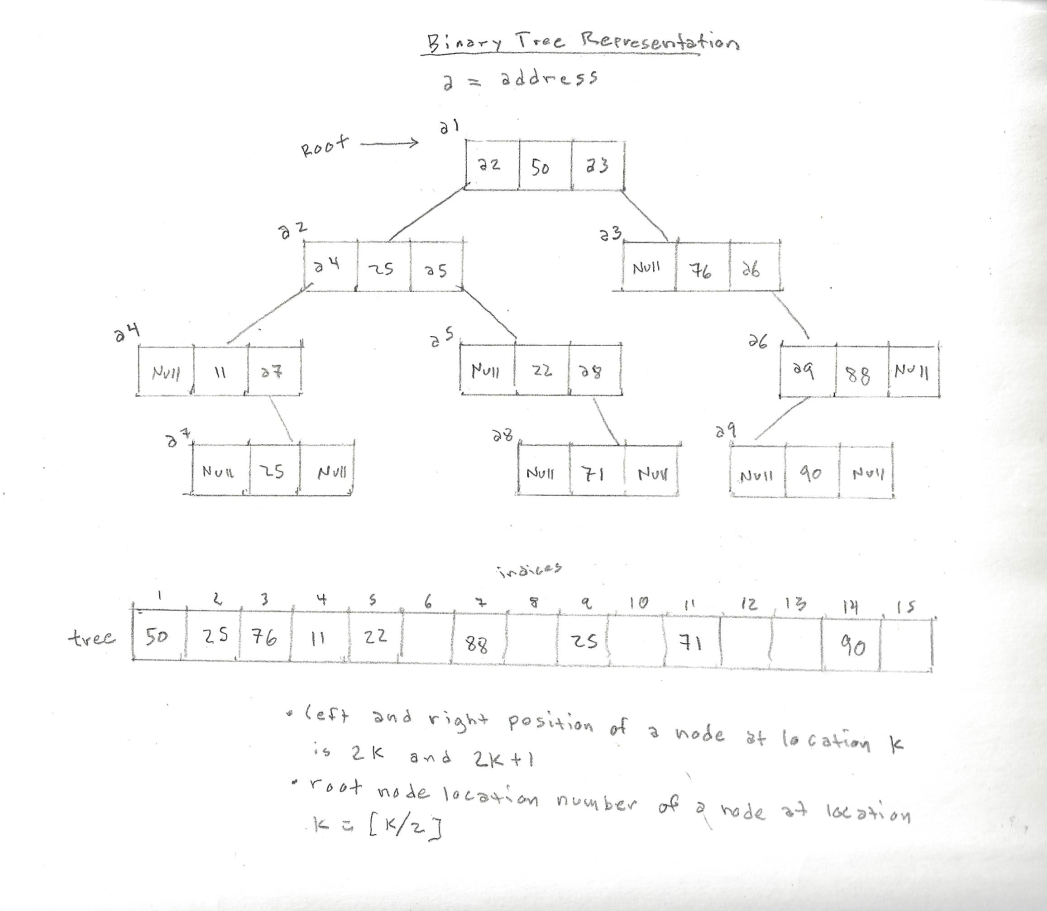 Binary Tree Representation
a = address
Root → a1
a2 50 a3
a2 a3
a4 25 a5 Null 76 a6
a4 a5 a6
Null 11 a7 Null 22 a8 a9 88 Null
a7 a8 a9
Null 25 Null Null 71 Null Null 90 Null
indices
1 2 3 4 5 6 7 8 9 10 11 12 13 14 15
tree 50 25 76 11 22 88 25 71 90
• left and right position of a node at location k
is 2k and 2k+1
• root node location number of a node at location
k = [k/2]